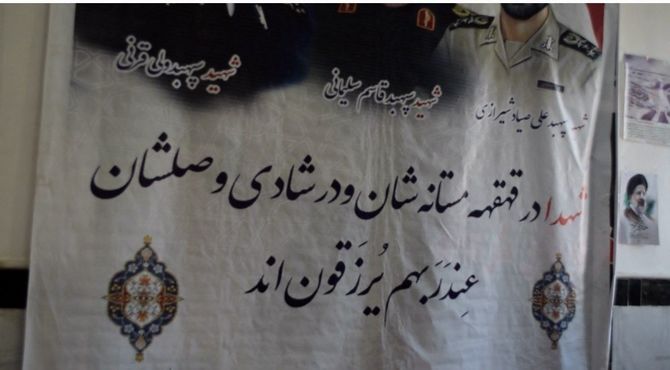 شهید سپهبد ولی قرنی
شهید سپهبد قاسم سلیمانی
شهید سپهبد علی صیاد شیرازی
شهدا در قهقهه مستانه‌شان و در شادی وصلشان
عِندَ رَبهم یُرزَقون اند